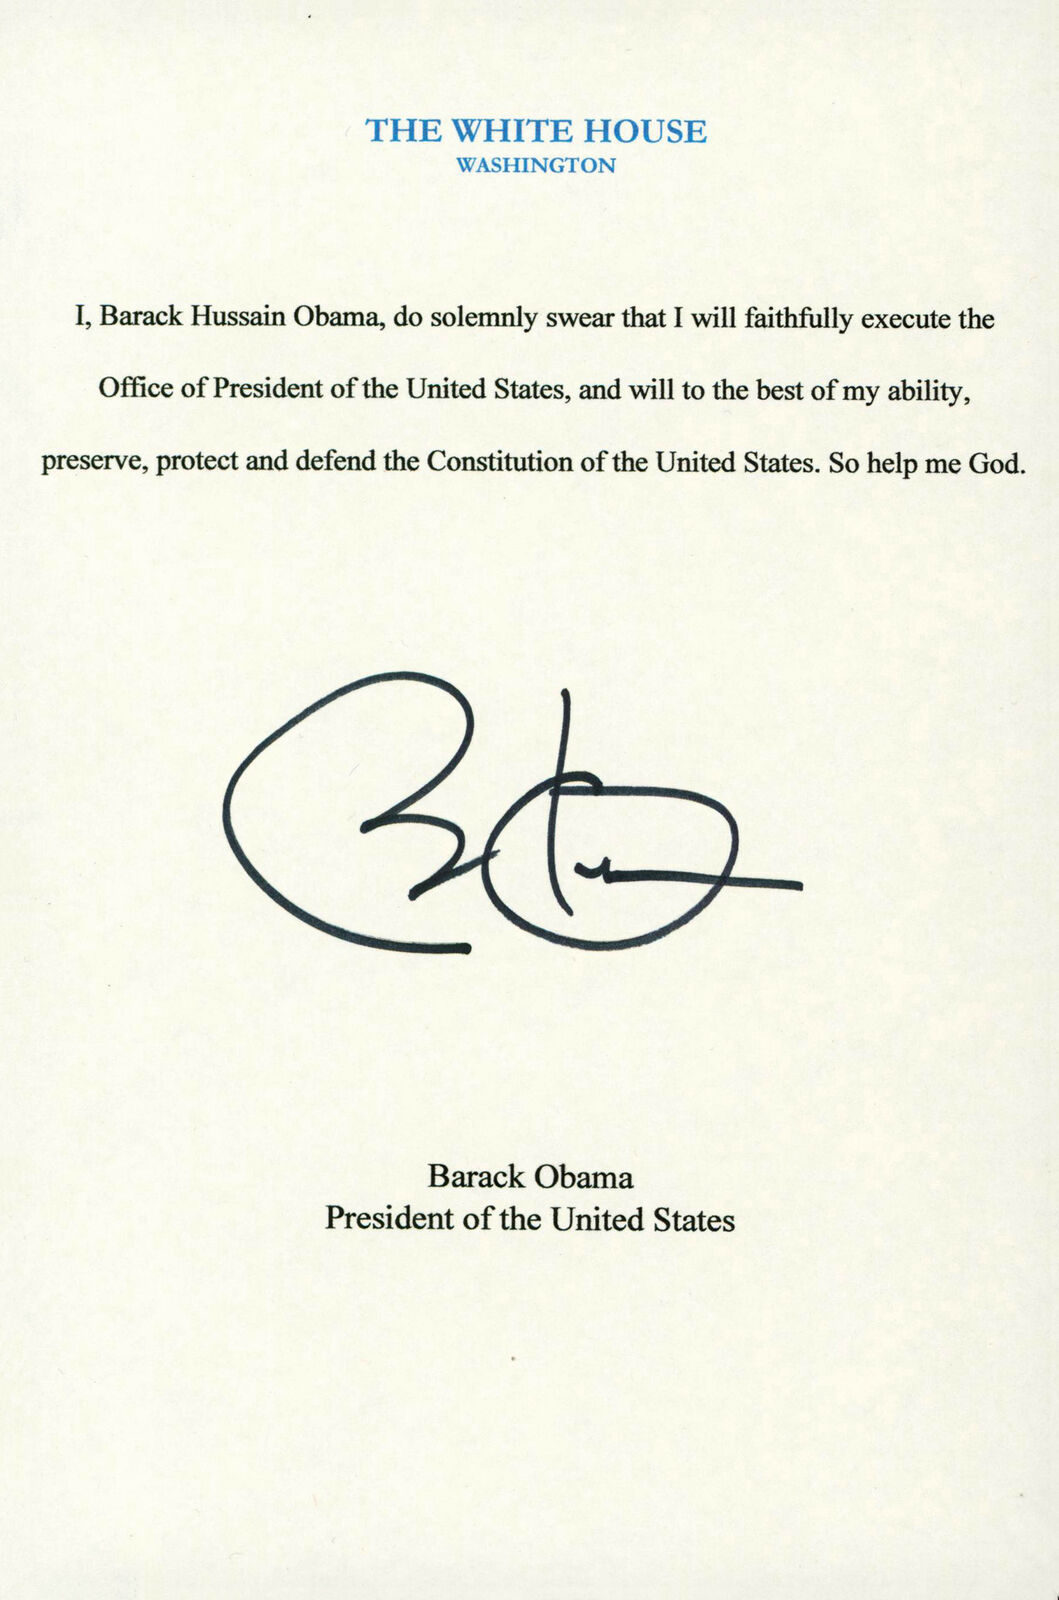 THE WHITE HOUSE
WASHINGTON
I, Barack Hussain Obama, do solemnly swear that I will faithfully execute the
Office of President of the United States, and will to the best of my ability,
preserve, protect and defend the Constitution of the United States. So help me God.
Barack Obama
President of the United States